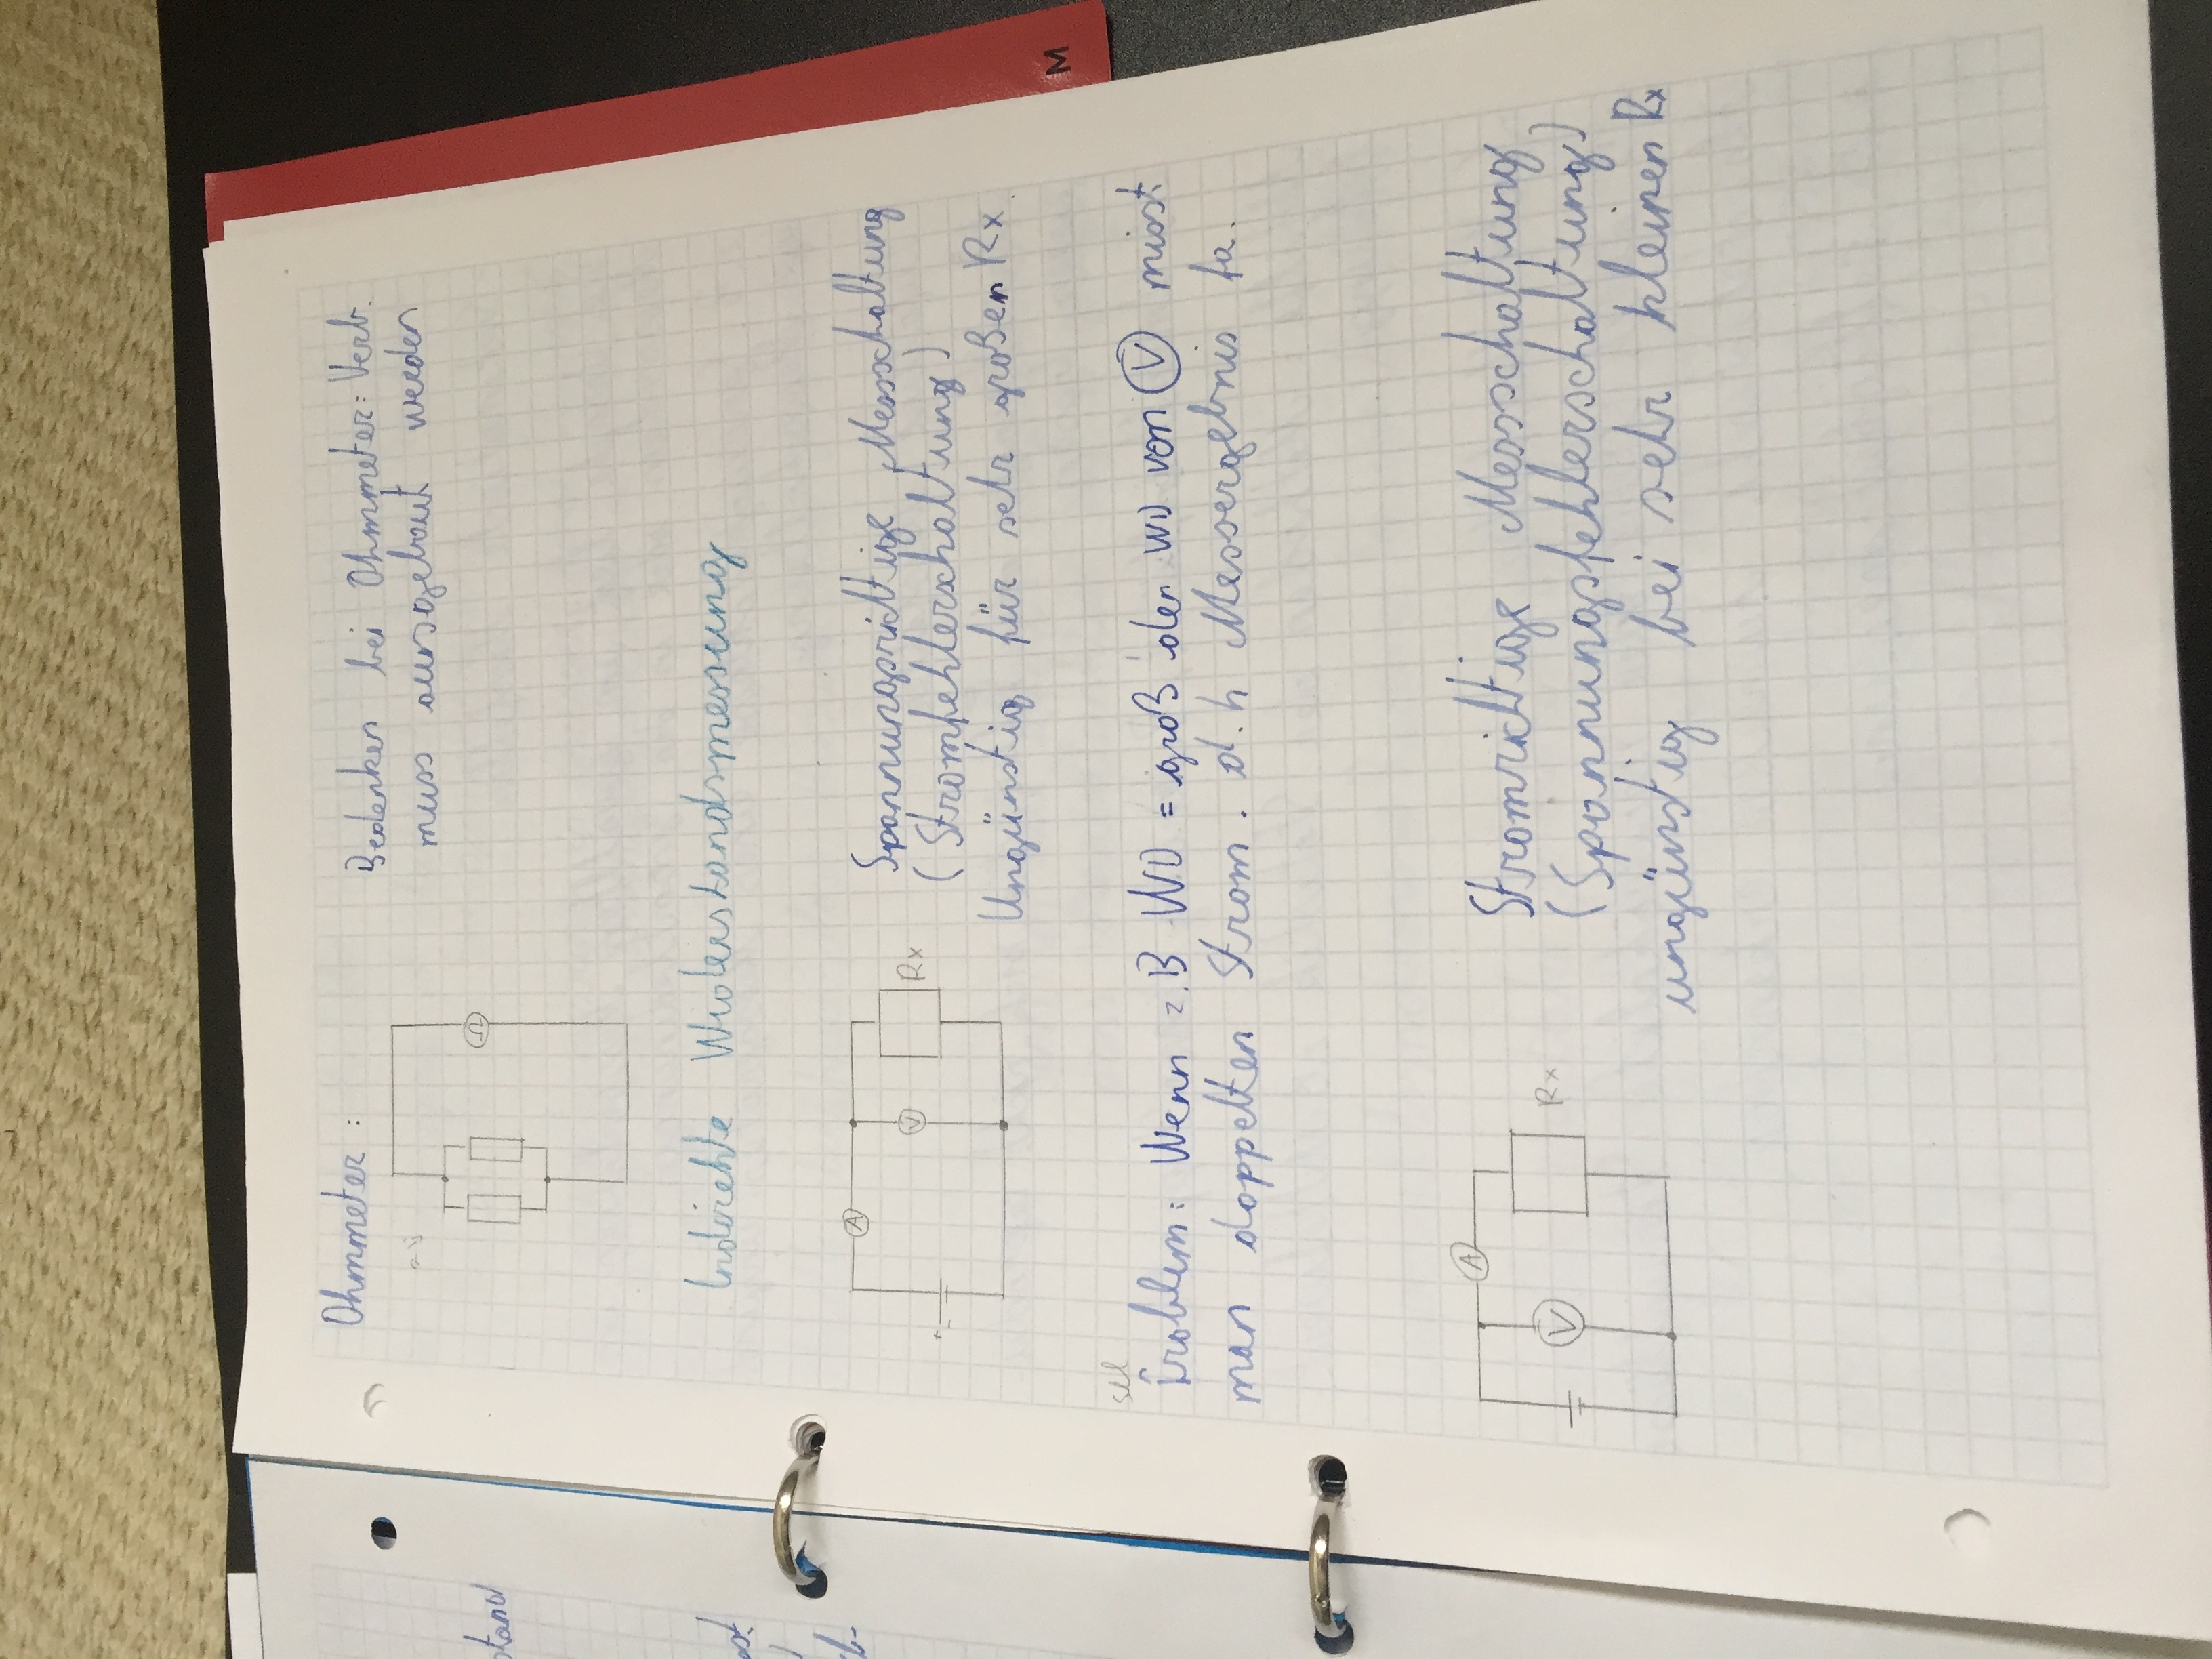 Ohmmeter :
Bedenken bei Ohmmeter: Verb.
muss ausgebaut werden
Ω
Indirekte Widerstandsmessung
A
V
Rx
+
-
Spannungsrichtige Messschaltung
(Stromfehlerschaltung)
Ungünstig für sehr großen Rx
Problem: Wenn z.B WD = groß der WD von V misst
man doppelten Strom. d.h Messergebnis fa.
A
V
Rx
Stromrichtige Messschaltung
(Spannungsfehlerschaltung)
ungünstig bei sehr kleinen Rx
M
stand